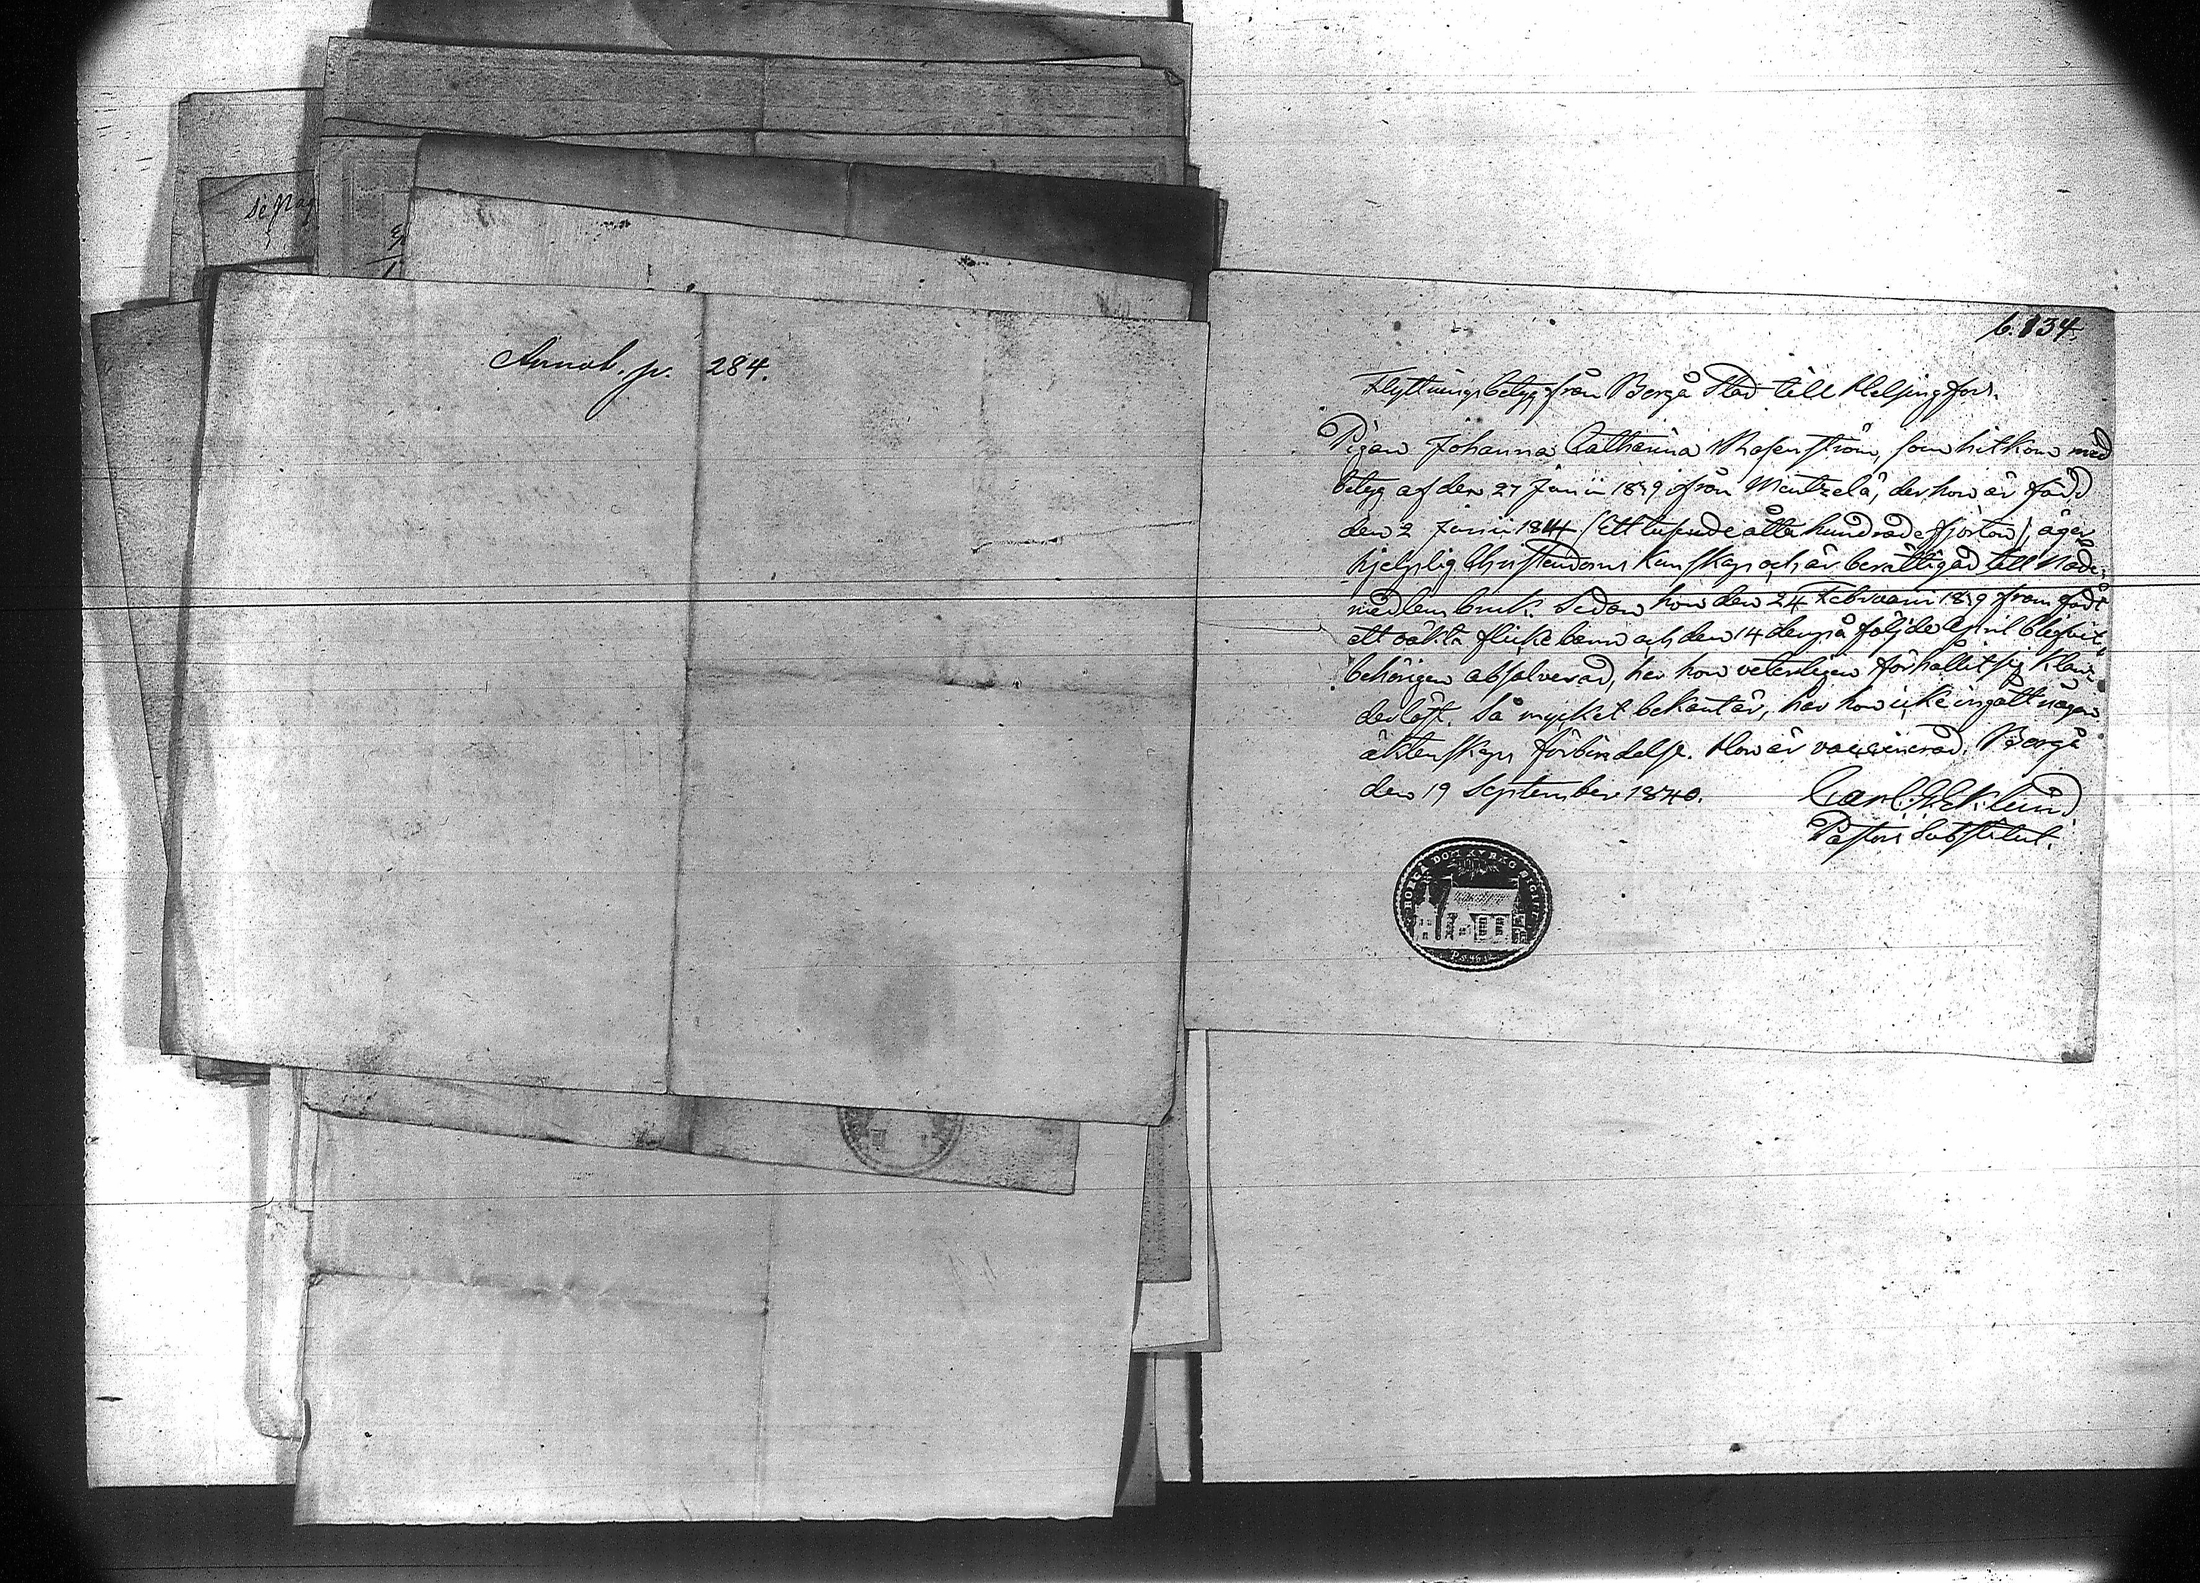 Annot. p. 284.
6.834.
Flyttningsbetyg från Borgå Stad till Helsingfors.
Pigan Johanna Catharina Rosenström, som hitkom med
betyg af den 27 Junii 1839 ifrån Mäntzelä, der hon är född
den 2 Junii 1814 (Ett tusende åtta hundrade fjorton), äger
hjelplig Christendoms kunskap och är berättigad till Nade-
medlens bruk. Sedan hon den 24 Februarii 1839 framfödt
ett oäkta flickebarn och den 14 derpå följde April blifvit
behörigen absolverad, har hon veterligen förhållit sig klan-
derlöst. Så mycket bekant är, har hon icke ingått någon
äktenskaps förbindelse. Hon är vaccinerad. Borgå
den 19 September 1840.
Carl G. Eklund
Pastors Substitut.
BORGÅ DOM KYRKO SIGILL